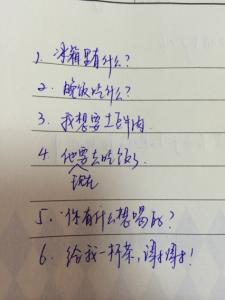 1. 冰箱里有什么?
2. 晚饭吃什么?
3. 我想要土豆牛肉.
4. 他要去吃饭了
现在
5. 你有什么想喝的?
6. 给我一杯茶, 谢谢!